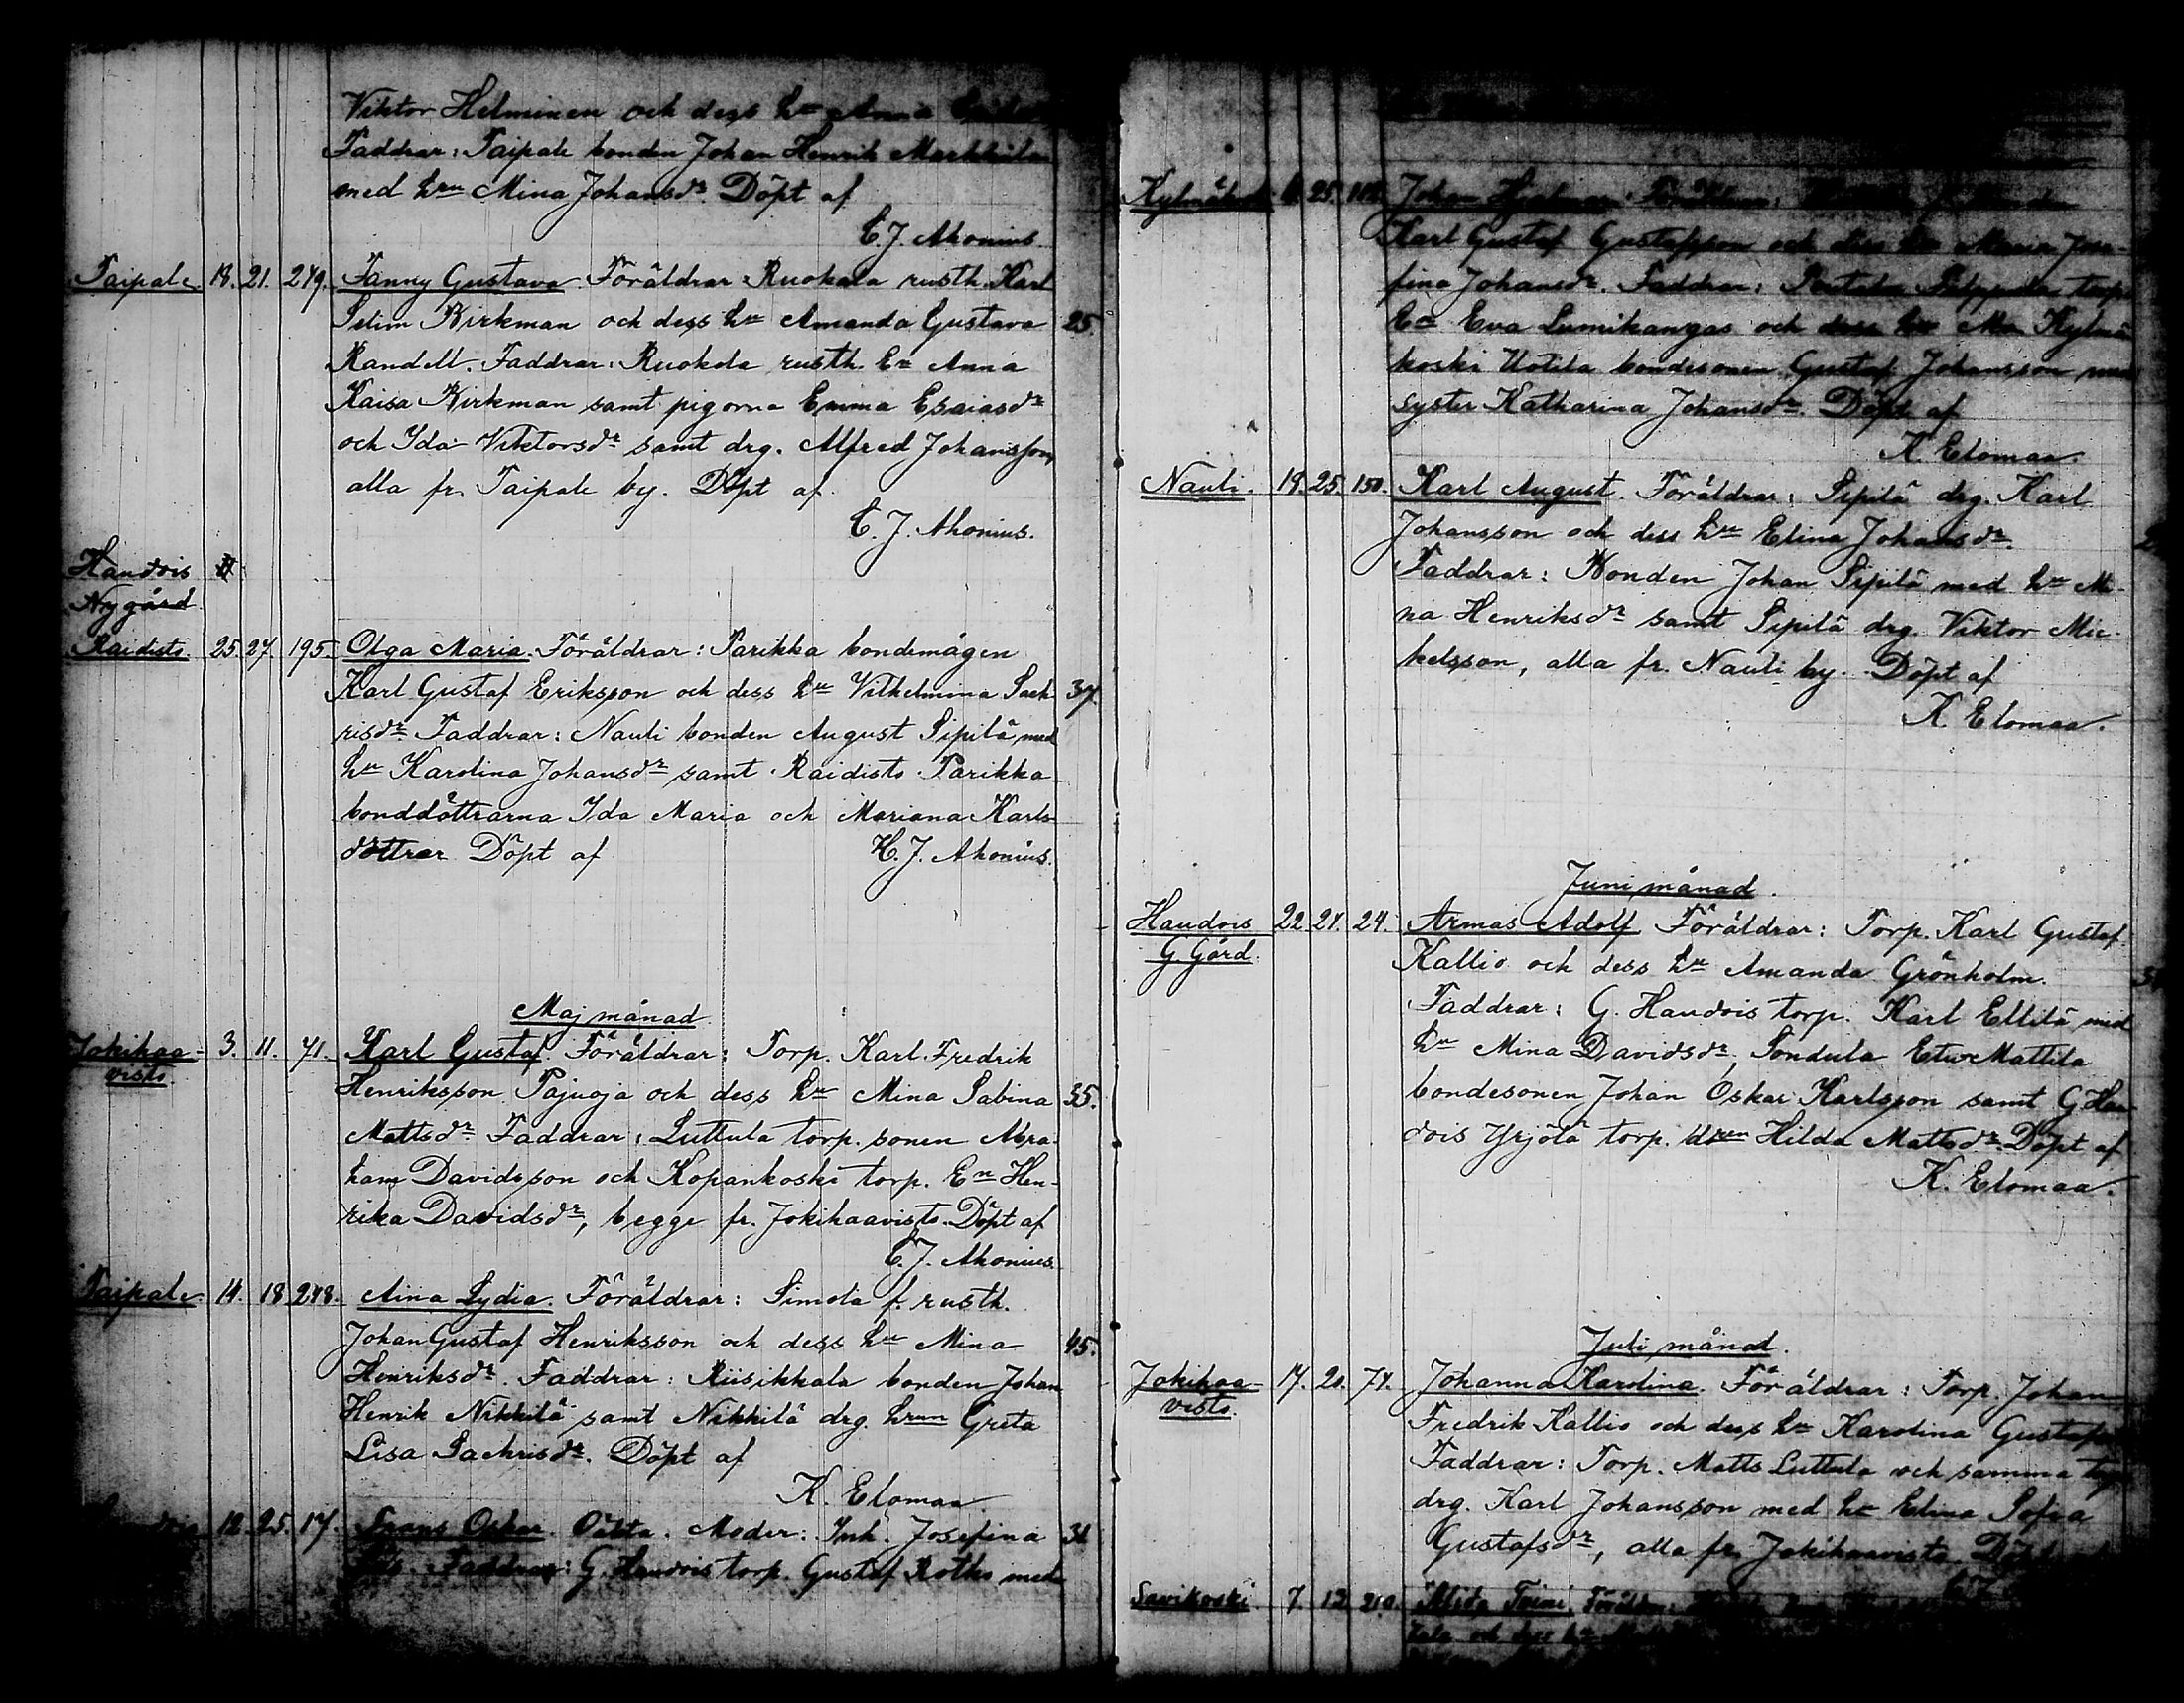 Viktor Helminen och dess hu Anna
Faddrar: Taipale bonden Johan Henrik Markkula
med hrn Mina Johansdr. Döpt af
C. J. Ahonius.
Taipale 18. 21. 249. Fanny Gustava. Föräldrar: Ruokola rusth. Karl
Selim Kirkman och dess hu Amanda Gustava 25.
Randell. Faddrar: Ruokola rusth. En Anna
Kaisa Kirkman samt pigorna Emma Esaiasdr
och Ida Viktorsdr samt drg. Alfred Johansson,
alla fr. Taipale by. Döpt af
C. J. Ahonius.
Haudois
Nygård
Raidisto. 25. 27. 195. Olga Maria. Föräldrar: Parikka bondemågen
Karl Gustaf Eriksson och dess hu Vilhelmina Sack- 37.
risdr. Faddrar: Nauli bonden August Sipilä med
hu Karolina Johansdr samt Raidisto Parikka
bonddöttrarna Ida Maria och Mariana Karls-
döttrar Döpt af H. J. Ahonius.
Maj månad.
Jokihaa- 3. 11. 71. Karl Gustaf. Föräldrar: Torp. Karl Fredrik
visto.
Henriksson Pajuoja och dess hu Mina Sabina 35.
Mattsdr. Faddrar: Luttula torp. sonen Abra-
ham Davidsson och Kopankoski torp. En Hen-
rika Davidsdr, begge fr. Jokihaavisto. Döpt af
C. J. Ahonius.
Taipale 14. 18. 248. Aina Lydia. Föräldrar: Simola f. rusth.
Johan Gustaf Henriksson och dess hu Mina 45.
Henriksdr. Faddrar: Riisikkala bonden Johan
Henrik Nikkilä samt Nikkilä drg. hrun Greta
Lisa Sachrisdr. Döpt af
K. Elomaa.
12. 25. 17. Frans Oskar. Oäkta. Moder: Inh. Josefina 31
Faddrar: G. Haudois torp. Gustaf Rotko med
25. Johan Hjalmar. Föräldrar:
Karl Gustaf Gustafsson och dess hu Maria Jose-
fina Johansdr. Faddrar: torp.
En Eva Lumikangas och Kylmä-
koski Uotila bondesonen Gustaf Johansson med
syster Katharina Johansdr. Döpt af
K. Elomaa.
Nauli. 18. 25. 150. Karl August. Föräldrar: Sipilä drg. Karl
Johansson och dess hu Elina Johansdr. 2
Faddrar: Bonden Johan Sipilä med hu Mi-
na Henriksdr samt Sipilä drg. Viktor Mic-
kelsson, alla fr. Nauli by. Döpt af
K. Elomaa.
Juni månad.
Haudois 22. 24. 24. Armas Adolf. Föräldrar: Torp. Karl Gustaf
G. Gård.
Kallio och dess hu Amanda Grönholm.
Faddrar: G. Haudois torp. Karl Ellilä med
hu Mina Davidsdr, Sondula Etu-Mattila
bondesonen Johan Oskar Karlsson samt G Hau-
dois Yrjölä torp. dren Hilda Mattsdr. Döpt af
K. Elomaa.
Juli månad.
Jokihaa- 17. 20. 74. Johanna Karolina. Föräldrar: Torp. Johan
visto.
Fredrik Kallio och dess hu Karolina
Faddrar: Torp. Matts Luttula och samma
drg. Karl Johansson med hu Elina Sofia
Gustafsdr, alla fr. Jokihaavisto. Döpt
Savikoski. 7. 12. 210. Alida Toini. Föräldrar:
och dess hu